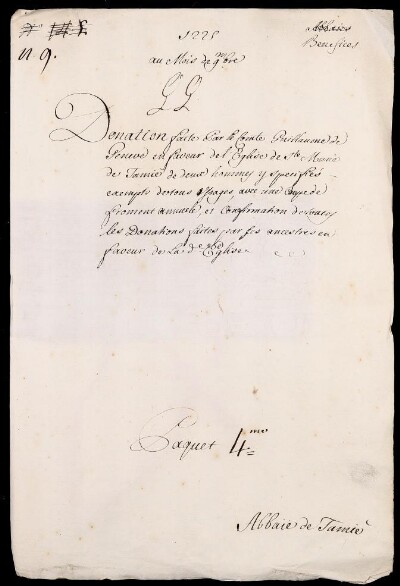 n 9.
Abbaies
Benefices
1225
au Mois de 9bre
Donation faite Par le Comte Guillaume de
Geneve en faveur de l'Eglise de Ste Marie
de Tamié de deux hommes y specifiés
exempts de tous Usages, avec une Coupe de
froment annuele, et Confirmation de toutes
les Donations faites par ses ancestres en
faveur de La de Eglise
Paquet 4mo
Abbaie de Tamié